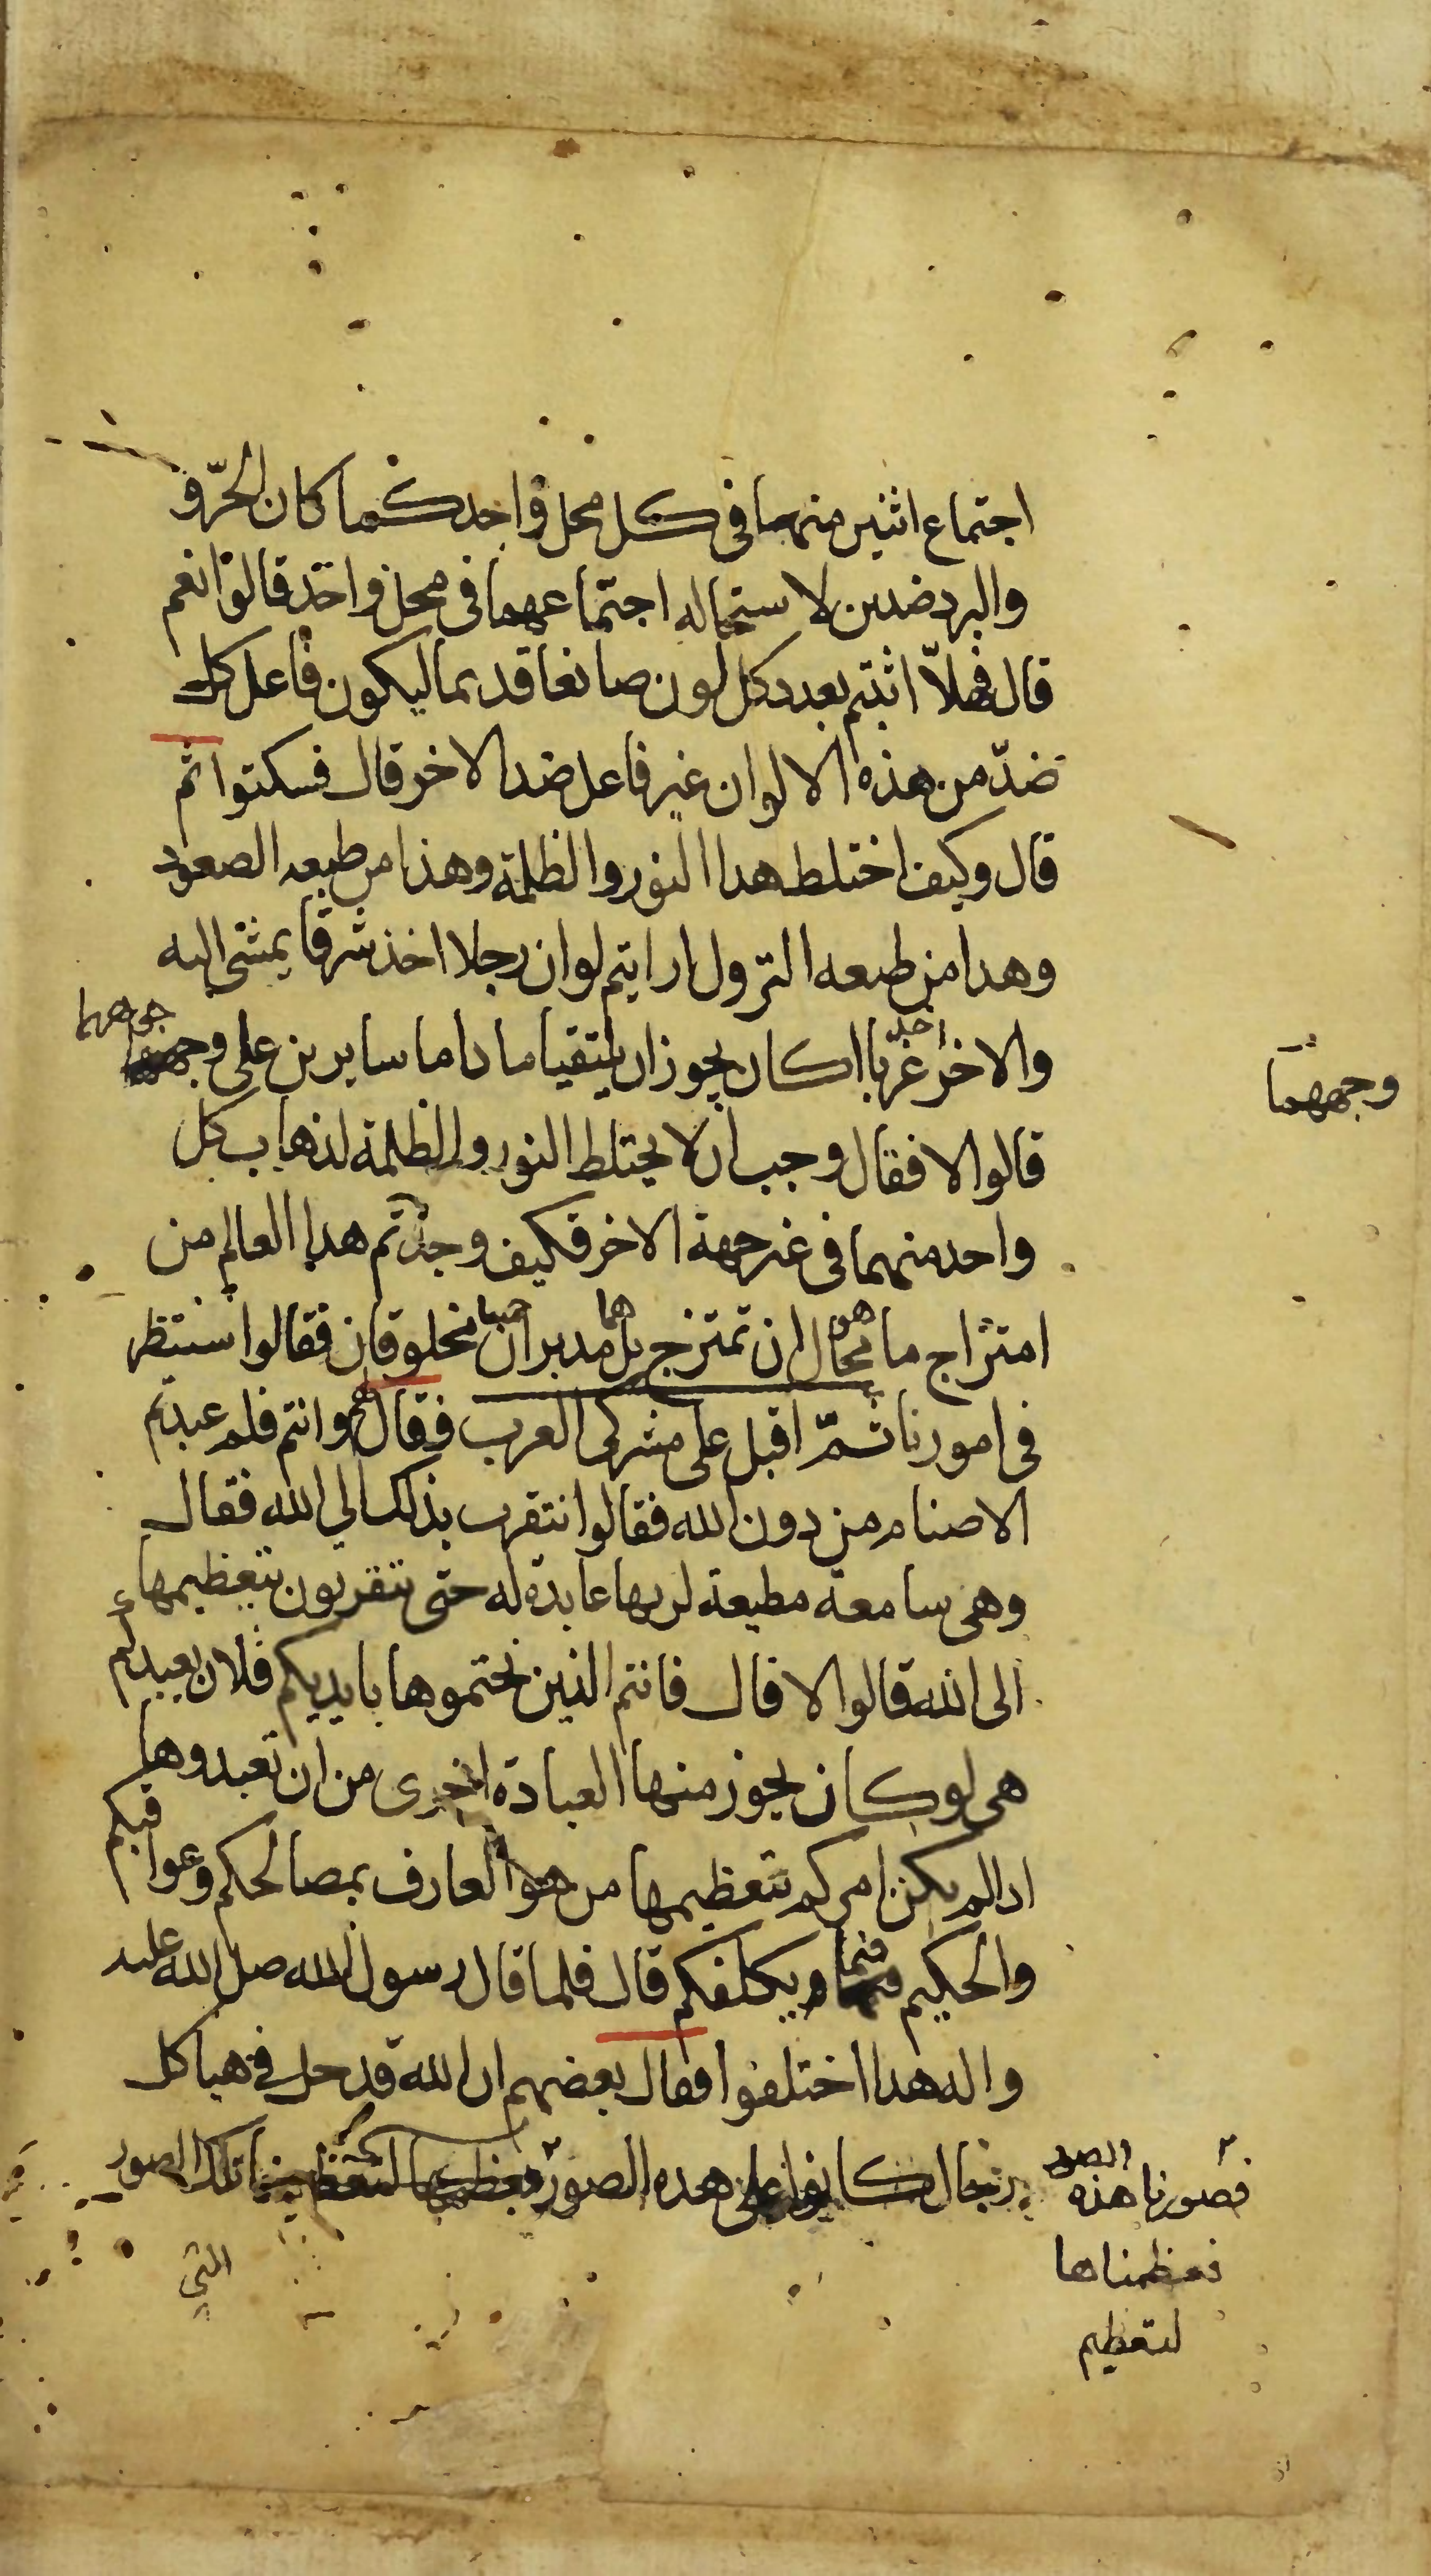 اجتماع اثنين منهما في كل محل واحد كما كان الحرّ و
والبرد ضدين لاستحاله اجتماعهما في محل واحد قالوا نعم
قال فهلاّ اثبتم بعدد كل لون صانعا قديما ليكون فاعل كل
ضدّ من هذه الالوان غير فاعل ضد الاخر قال فسكتوا ثم
قال وكيف اختلط هذا النور والظلمة وهذا من طبعه الصعود
وهدا من طبعه النزول ارايتم لو ان رجلا اخذ شرقا يمشي اليه
والاخر اخذ غربا اكان يجوز ان يلتقيا ما داما سايرين على وجوههما
وجههما
قالوا لا فقال وجب ان لا يختلط النور والظلمة لذهاب كل
واحد منهما في غير جهة الاخر فكيف وجدتم هدا العالم من
امتزاج ما هو محال ان تمتزج بل هما مدبران جميعا مخلوقان فقالوا سننظر
في امورنا ثمّ اقبل على مشركي العرب فقال وانتم فلم عبدتم
الاصنام من دون الله فقالوا نتقرب بذلك الي الله فقال
وهي سامعة مطيعة لربها عابدة له حتى تتقربون بتعظيمها
الى الله قالوا لا قال فانتم الذين نحتموها بايديكم فلان يعبدكم
هي لو كان يجوز منها العبادة احرى من ان تعبدوها
ادا لم يكن امركم بتعظيمها من هو العارف بمصالحكم وعواقبكم
والحكيم فيما يكلفكم قال فلما قال رسول الله صلى الله عليه
واله هدا اختلفوا فقال بعضهم ان الله قد حل في هياكل
رجال كانوا على هده الصور تلك الصور
فصورنا هذه الصور
فعظمناها
لتعظيم
التي